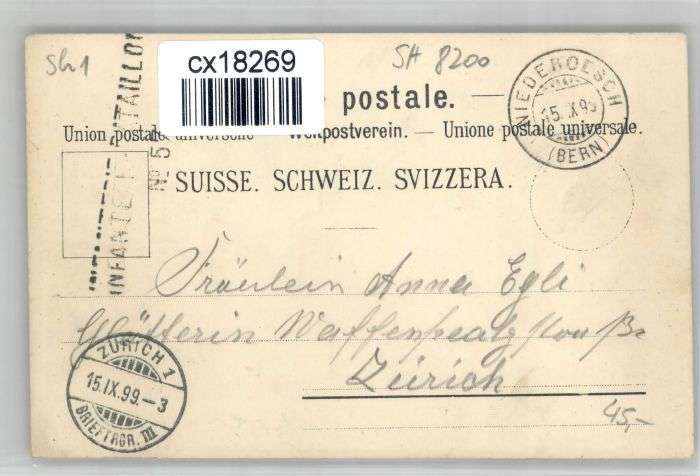 Sh 1
SH 8200
cx18269
postale.
Union postale universelle — Weltpostverein. — Unione postale universale.
SUISSE. SCHWEIZ. SVIZZERA.
INFANTERIE-BATAILLON
No 5
NIEDEROESCH
15. IX 99
(BERN)
Fräulein Anna Egli
Glätterin
Zürich
ZÜRICH 1
15.IX.99.–3
BRIEFTRGR. III
45,-